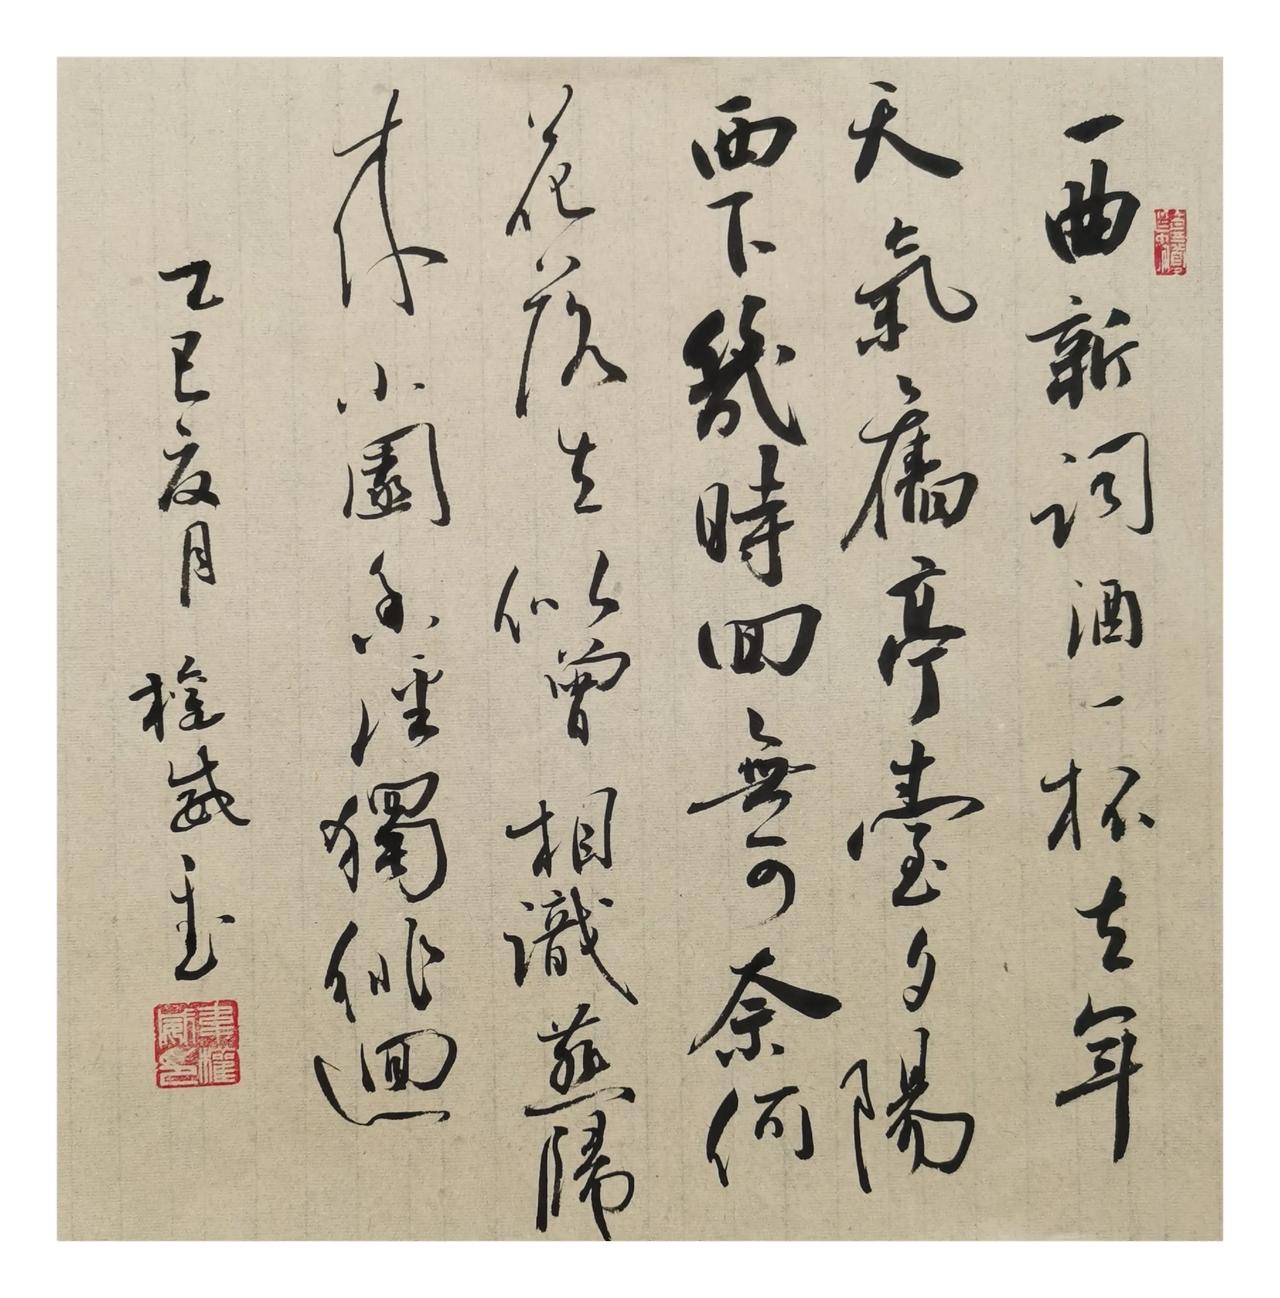 一曲新词酒一杯去年
天氣舊亭臺夕陽
西下幾時回無可奈何
花落去似曾相識燕歸
來小園香徑獨徘徊
乙巳夏月 權威書